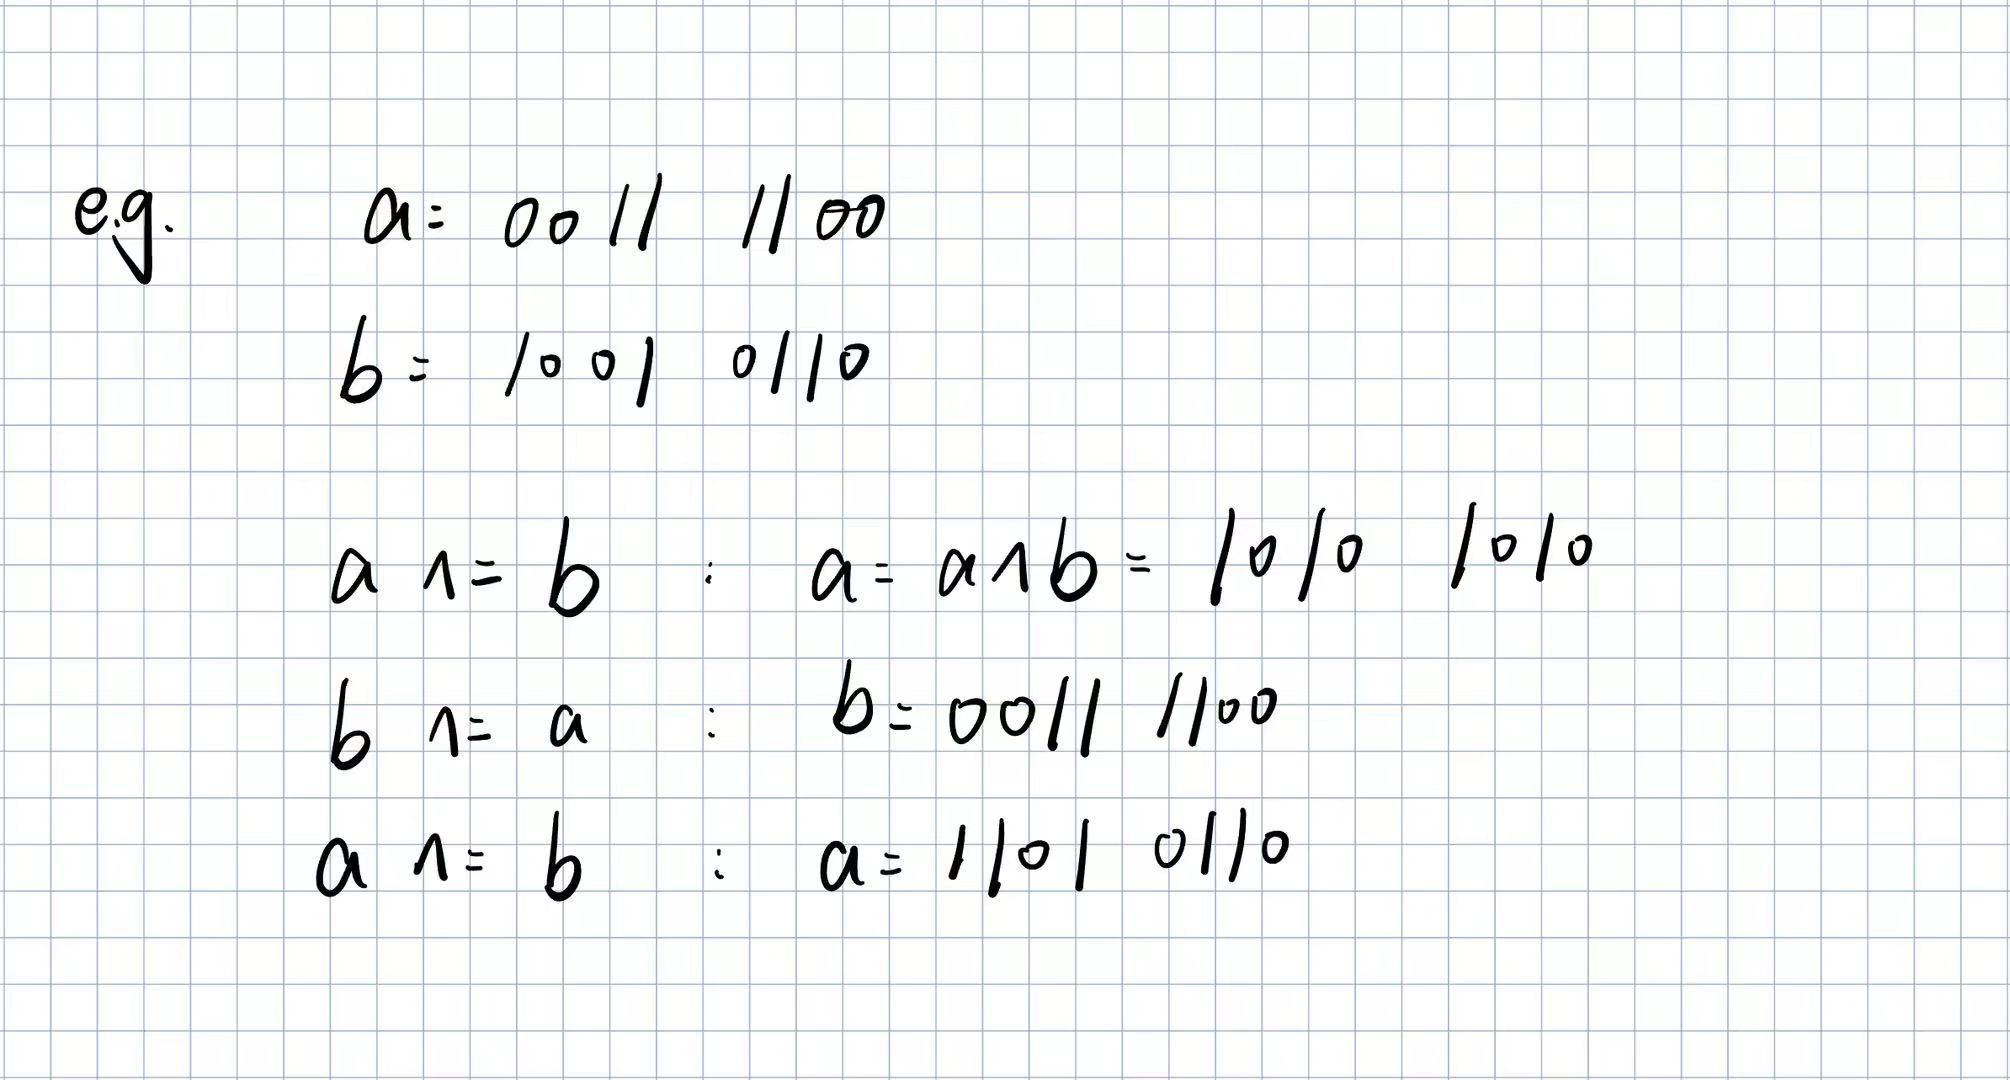 e.g. a= 0011 1100
b= 1001 0110
a ^= b : a= a^b= 1010 1010
b ^= a : b= 0011 1100
a ^= b : a= 1101 0110